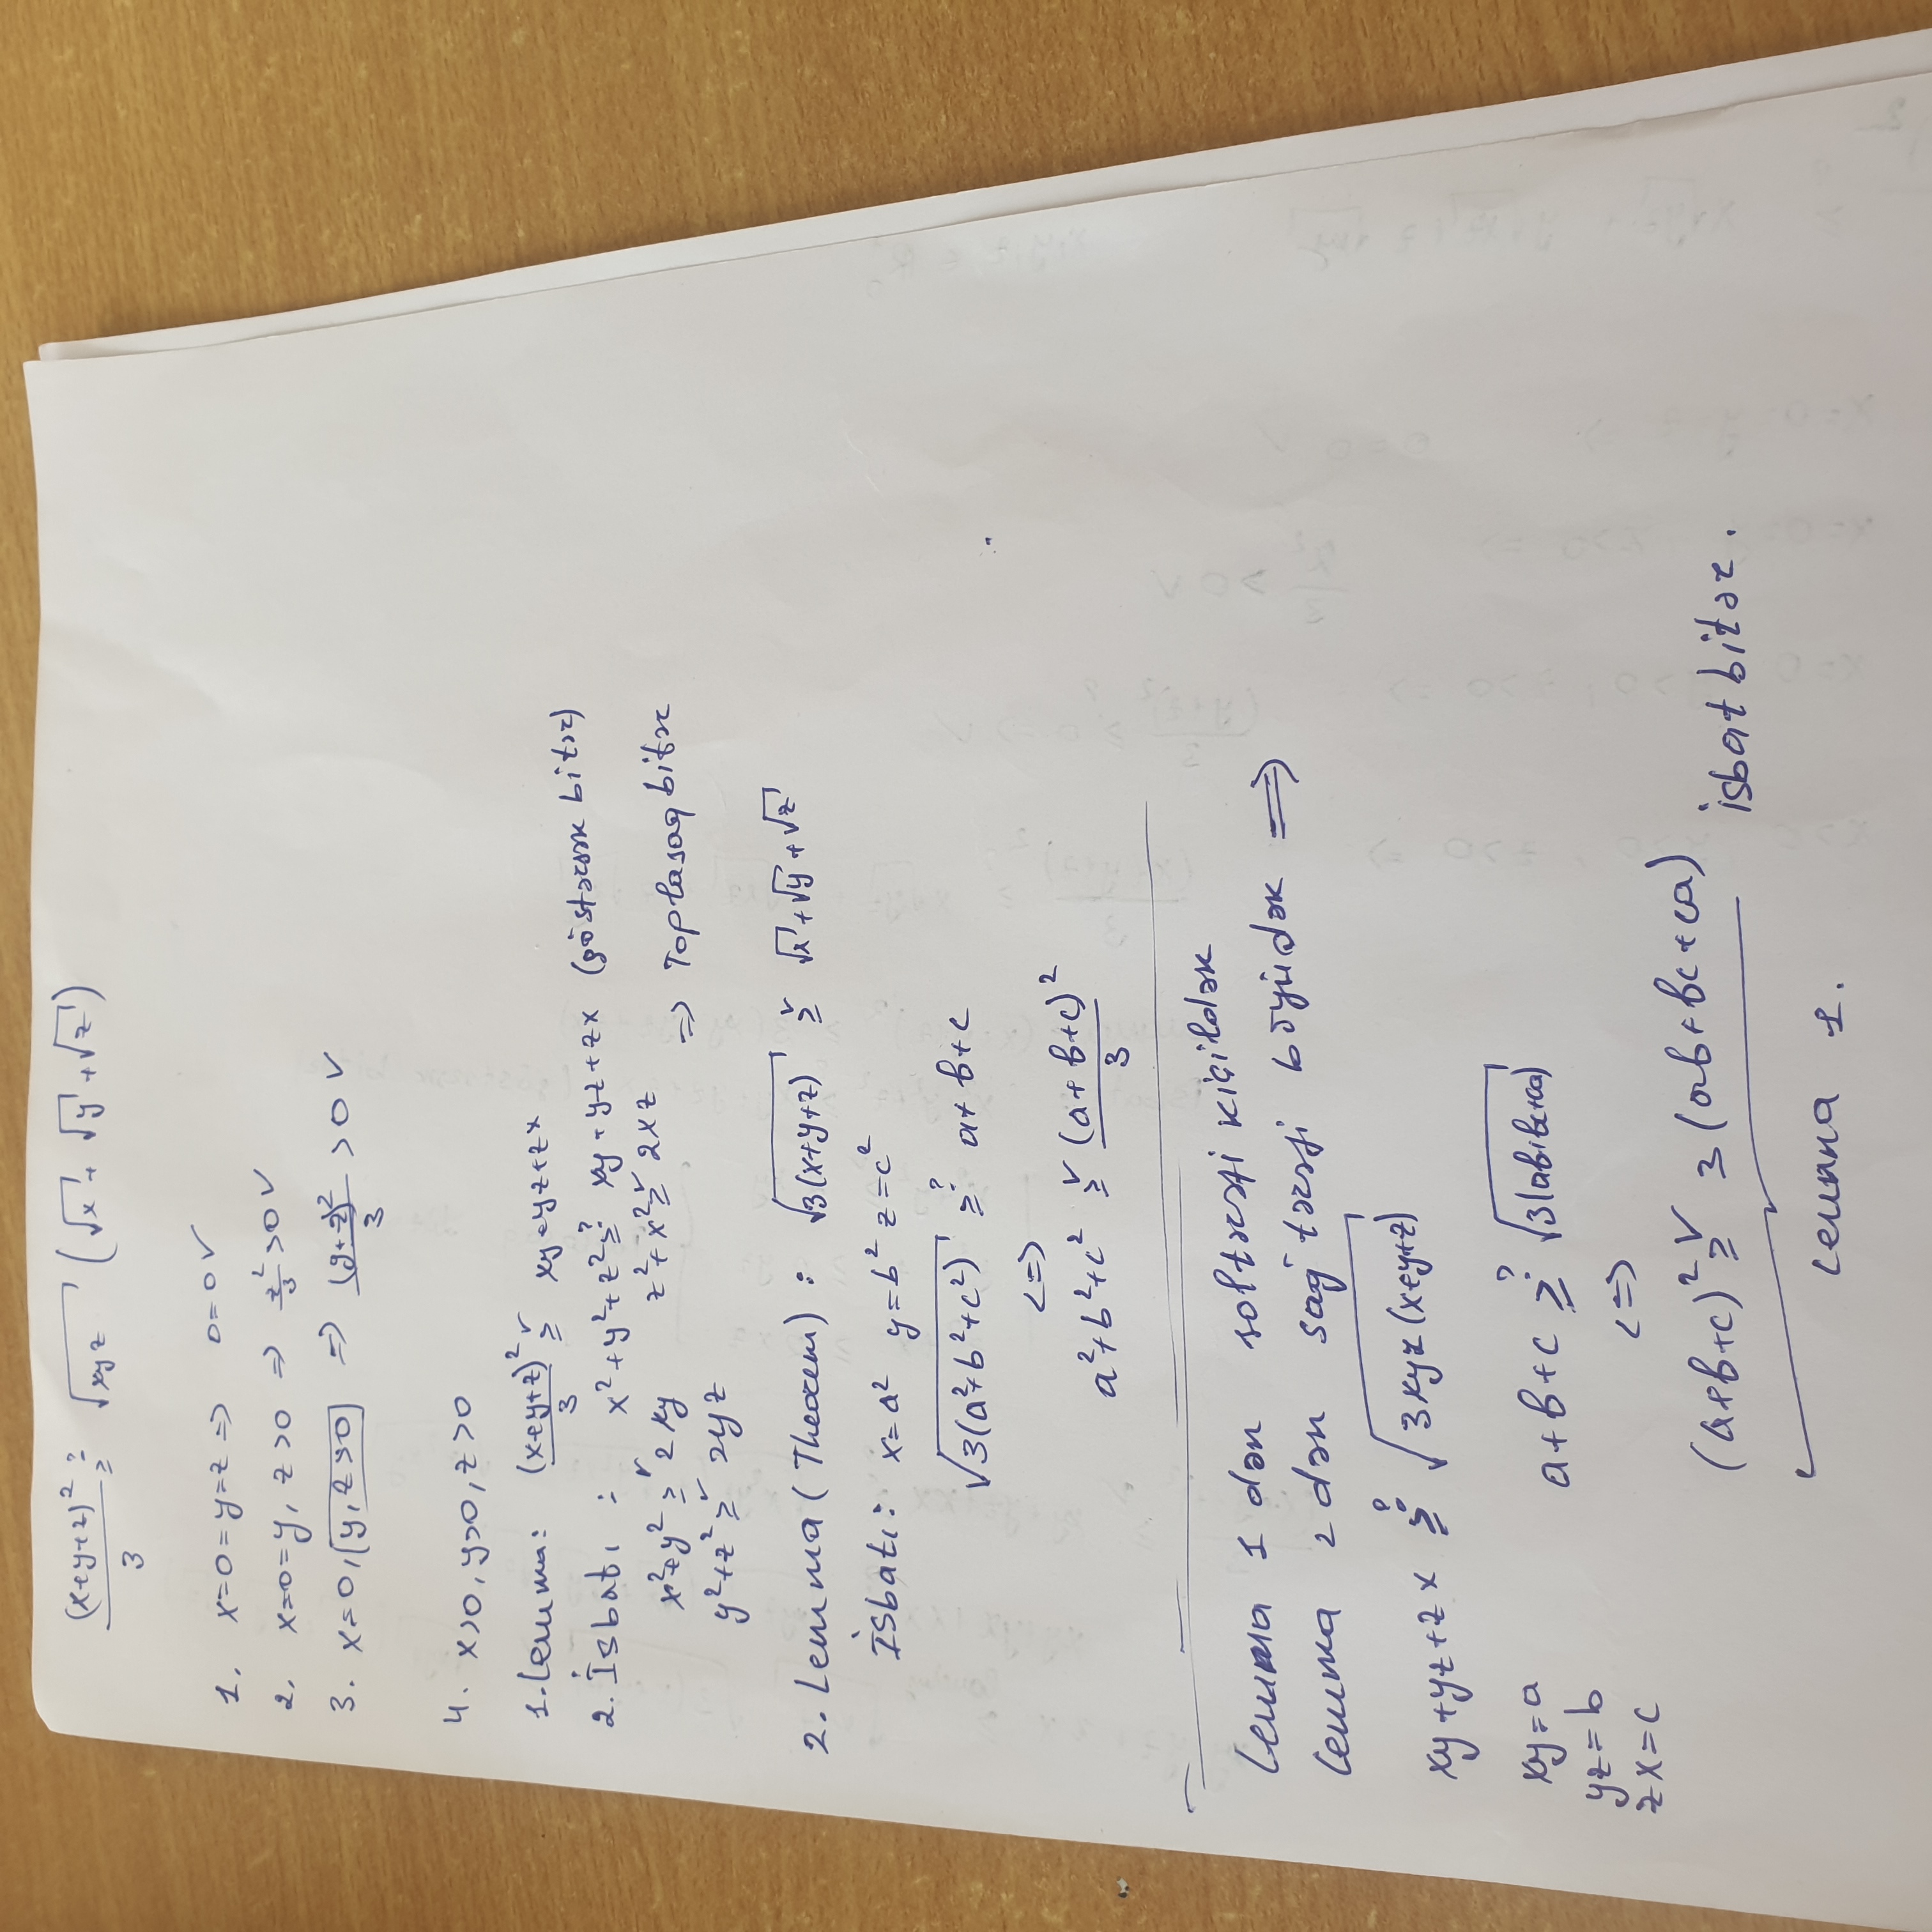 (x+y+z)²/3 ≥? √xyz (√x + √y + √z)
1. x=0=y=z => 0=0 ✓
2. x=0=y, z>0 => z²/3 >0 ✓
3. x=0, y,z>0 => (y+z)²/3 >0 ✓
4. x>0, y>0, z>0
1. Lemma: (x+y+z)²/3 ≥✓ xy+yz+zx
2. İsbatı: x²+y²+z² ≥? xy+yz+zx (göstərək bitər)
x²+y² ≥✓ 2xy z²+x² ≥✓ 2xz
y²+z² ≥✓ 2yz => Toplasaq bitər
2. Lemma (Theorem): √3(x+y+z) ≥✓ √x+√y+√z
İsbatı: x=a² y=b² z=c²
√3(a²+b²+c²) ≥? a+b+c
<=>
a²+b²+c² ≥✓ (a+b+c)²/3
Lemma 1 dən sol tərəfi kiçildək
Lemma 2 dən sağ tərəfi böyüdək =>
xy+yz+zx ≥? √3xyz(x+y+z)
xy=a
yz=b
zx=c
a+b+c ≥? √3(ab+bc+ca)
<=>
(a+b+c)² ≥✓ 3(ab+bc+ca) isbat bitər.
Lemma 1.